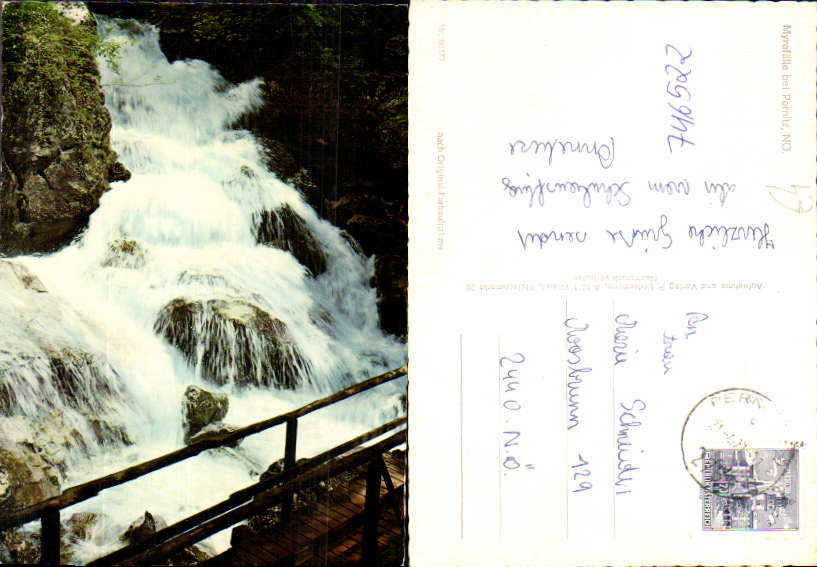 Myrafälle bei Pernitz, NÖ.
Herzliche Grüße sendet
dir vom Schulausflug
Anneliese
Aufnahme und Verlag P. Ledermann, A-1011 Wien I, Fleischmarkt 20
Nachdruck verboten
nach Original-Farbaufnahme
An
Frau
Maria Schneider
Moosbrunn 129
2440. N.Ö.
PERN
REPUBLIK ÖSTERREICH